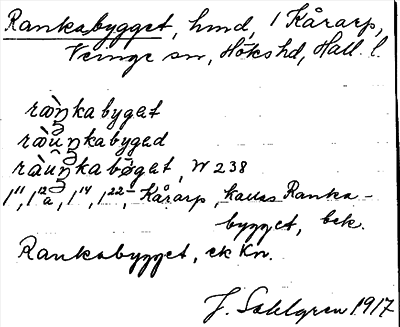 Rankabygget, hmd, i Kårarp,
Veinge sn, Höks hd, Hall. l.
ràŋkabygat
ràuŋkabygad
ràuŋkabøgat, W 238
1¹¹, 1¹²a, 1¹⁴, 1²²- Kårarp, kallas Ranka-
bygget, bek.
Rankabygget, ek Kn.
J. Sahlgren 1917